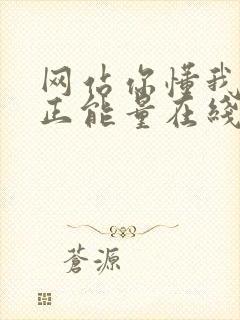 网站你懂我
正能量在线
蒼源